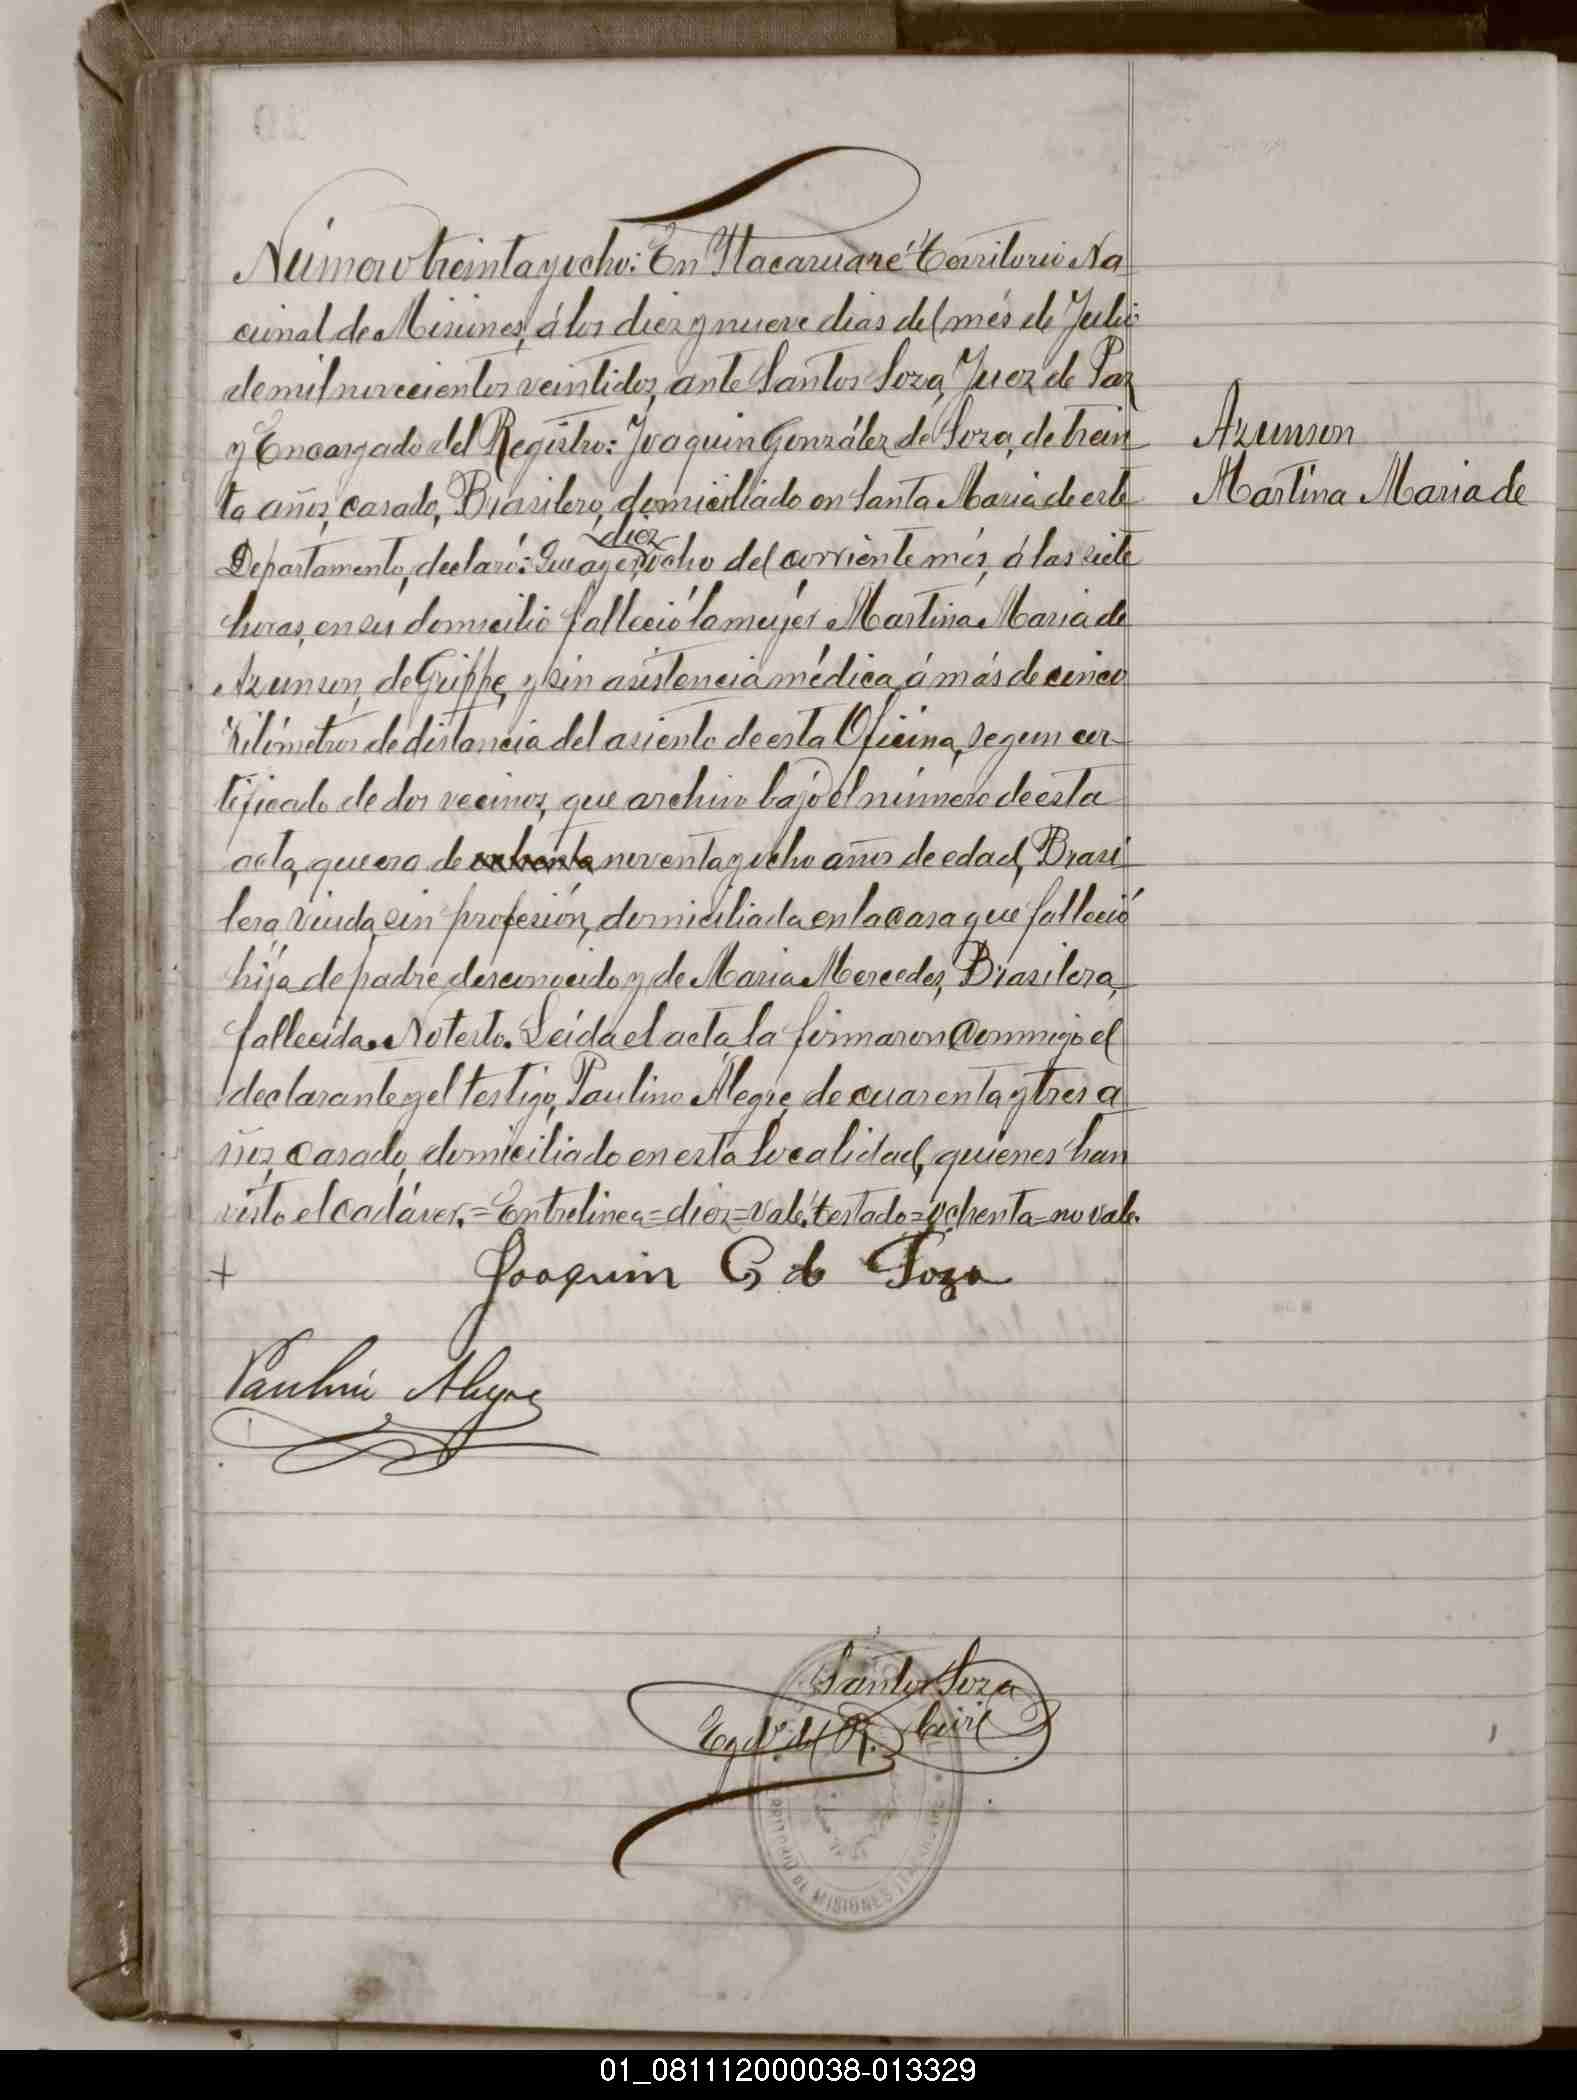 Número treinta y ocho: En Ytacaruaré Territorio Na
cional de Misiones, á los diez y nueve dias del més de Julio
de mil novecientos veintidos, ante Santos Soza, Juez de Paz
y Encargado del Registro: Joaquin González de Soza, de trein
ta años, casado, Brasilero, domiciliado en Santa Maria de este
diez
Departamento, declaró: Que ayer, ocho del corriente més, á las siete
horas, en su domicilio falleció la mujér Martina Maria de
Azunson, de Grippe, y sin asistencia médica, á más de cinco
kilómetros de distancia del asiento de esta Oficina, segun cer
tificado de dos vecinos, que archivo bajo el número de esta
acta, que era de ochenta noventa y ocho años de edad, Brasi
lera viuda, sin profesión, domiciliada en la casa que falleció
hija de padre desconocido y de Maria Mercedes, Brasilera,
fallecida. No testó. Leida el acta la firmaron conmigo el
declarante y el testigo, Paulino Alegre, de cuarenta y tres a
ños, casado, domiciliado en esta localidad, quienes han
visto el cadáver.=Entrelinea=diez=vale. testado=ochenta=no vale.
Azunson
Martina Maria de
+ Joaquin G de Soza
Paulino Alegre
Santos Soza
Egdo. del R. Civil
TERRITORIO DE MISIONES
01_081112000038-013329